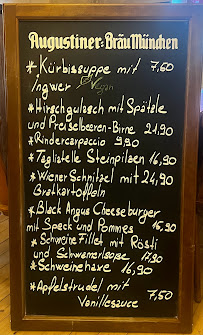 Augustiner-Bräu München
* Kürbissuppe mit 7,50
Ingwer Vegan
* Hirschgulasch mit Spätzle
und Preiselbeeren-Birne 21,90
* Rindercarpaccio 9,90
* Tagliatelle Steinpilzen 16,90
* Wiener Schnitzel mit 24,90
Bratkartoffeln
* Black Angus Cheeseburger
mit Speck und Pommes 15,90
* Schweine Filet mit Rösti
und Schwammerlsoße 17,90
* Schweinshaxe 16,90
* Apfelstrudel mit 7,50
Vanillesauce